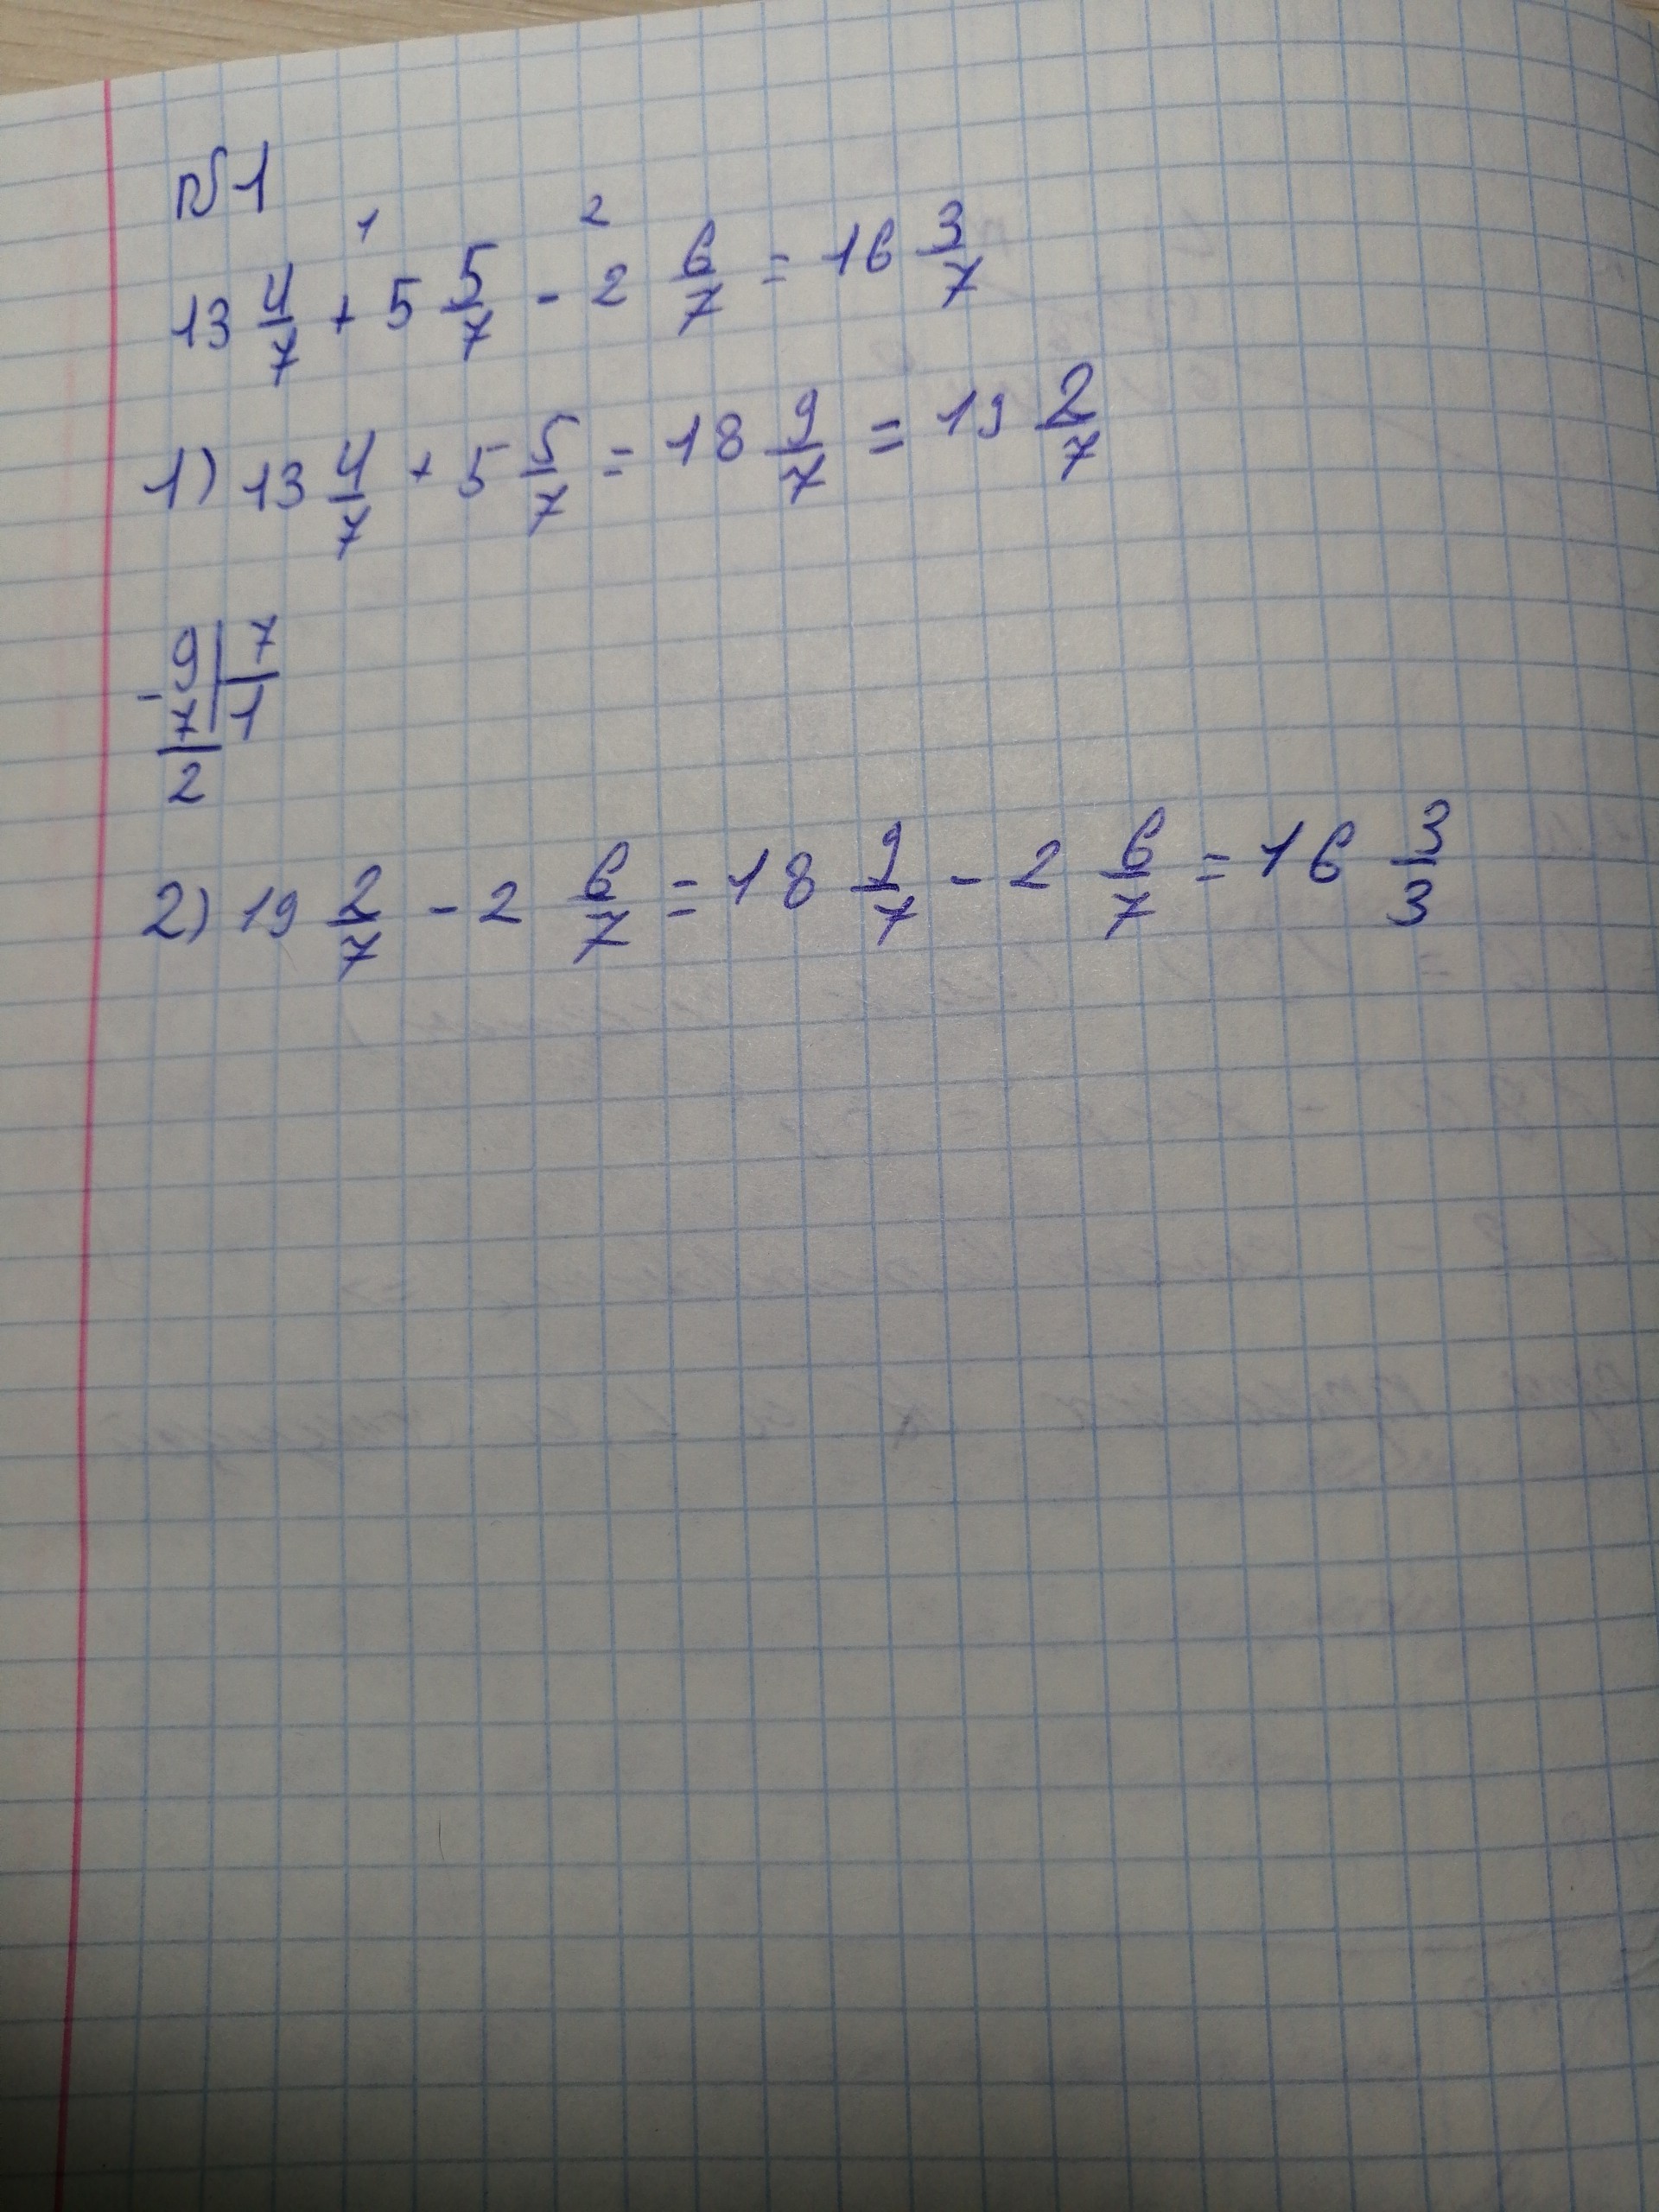 №1
1 2
13 4/7 + 5 5/7 - 2 6/7 = 16 3/7
1) 13 4/7 + 5 5/7 = 18 9/7 = 19 2/7
9 | 7
- 7 | 1
2
2) 19 2/7 - 2 6/7 = 18 9/7 - 2 6/7 = 16 3/3